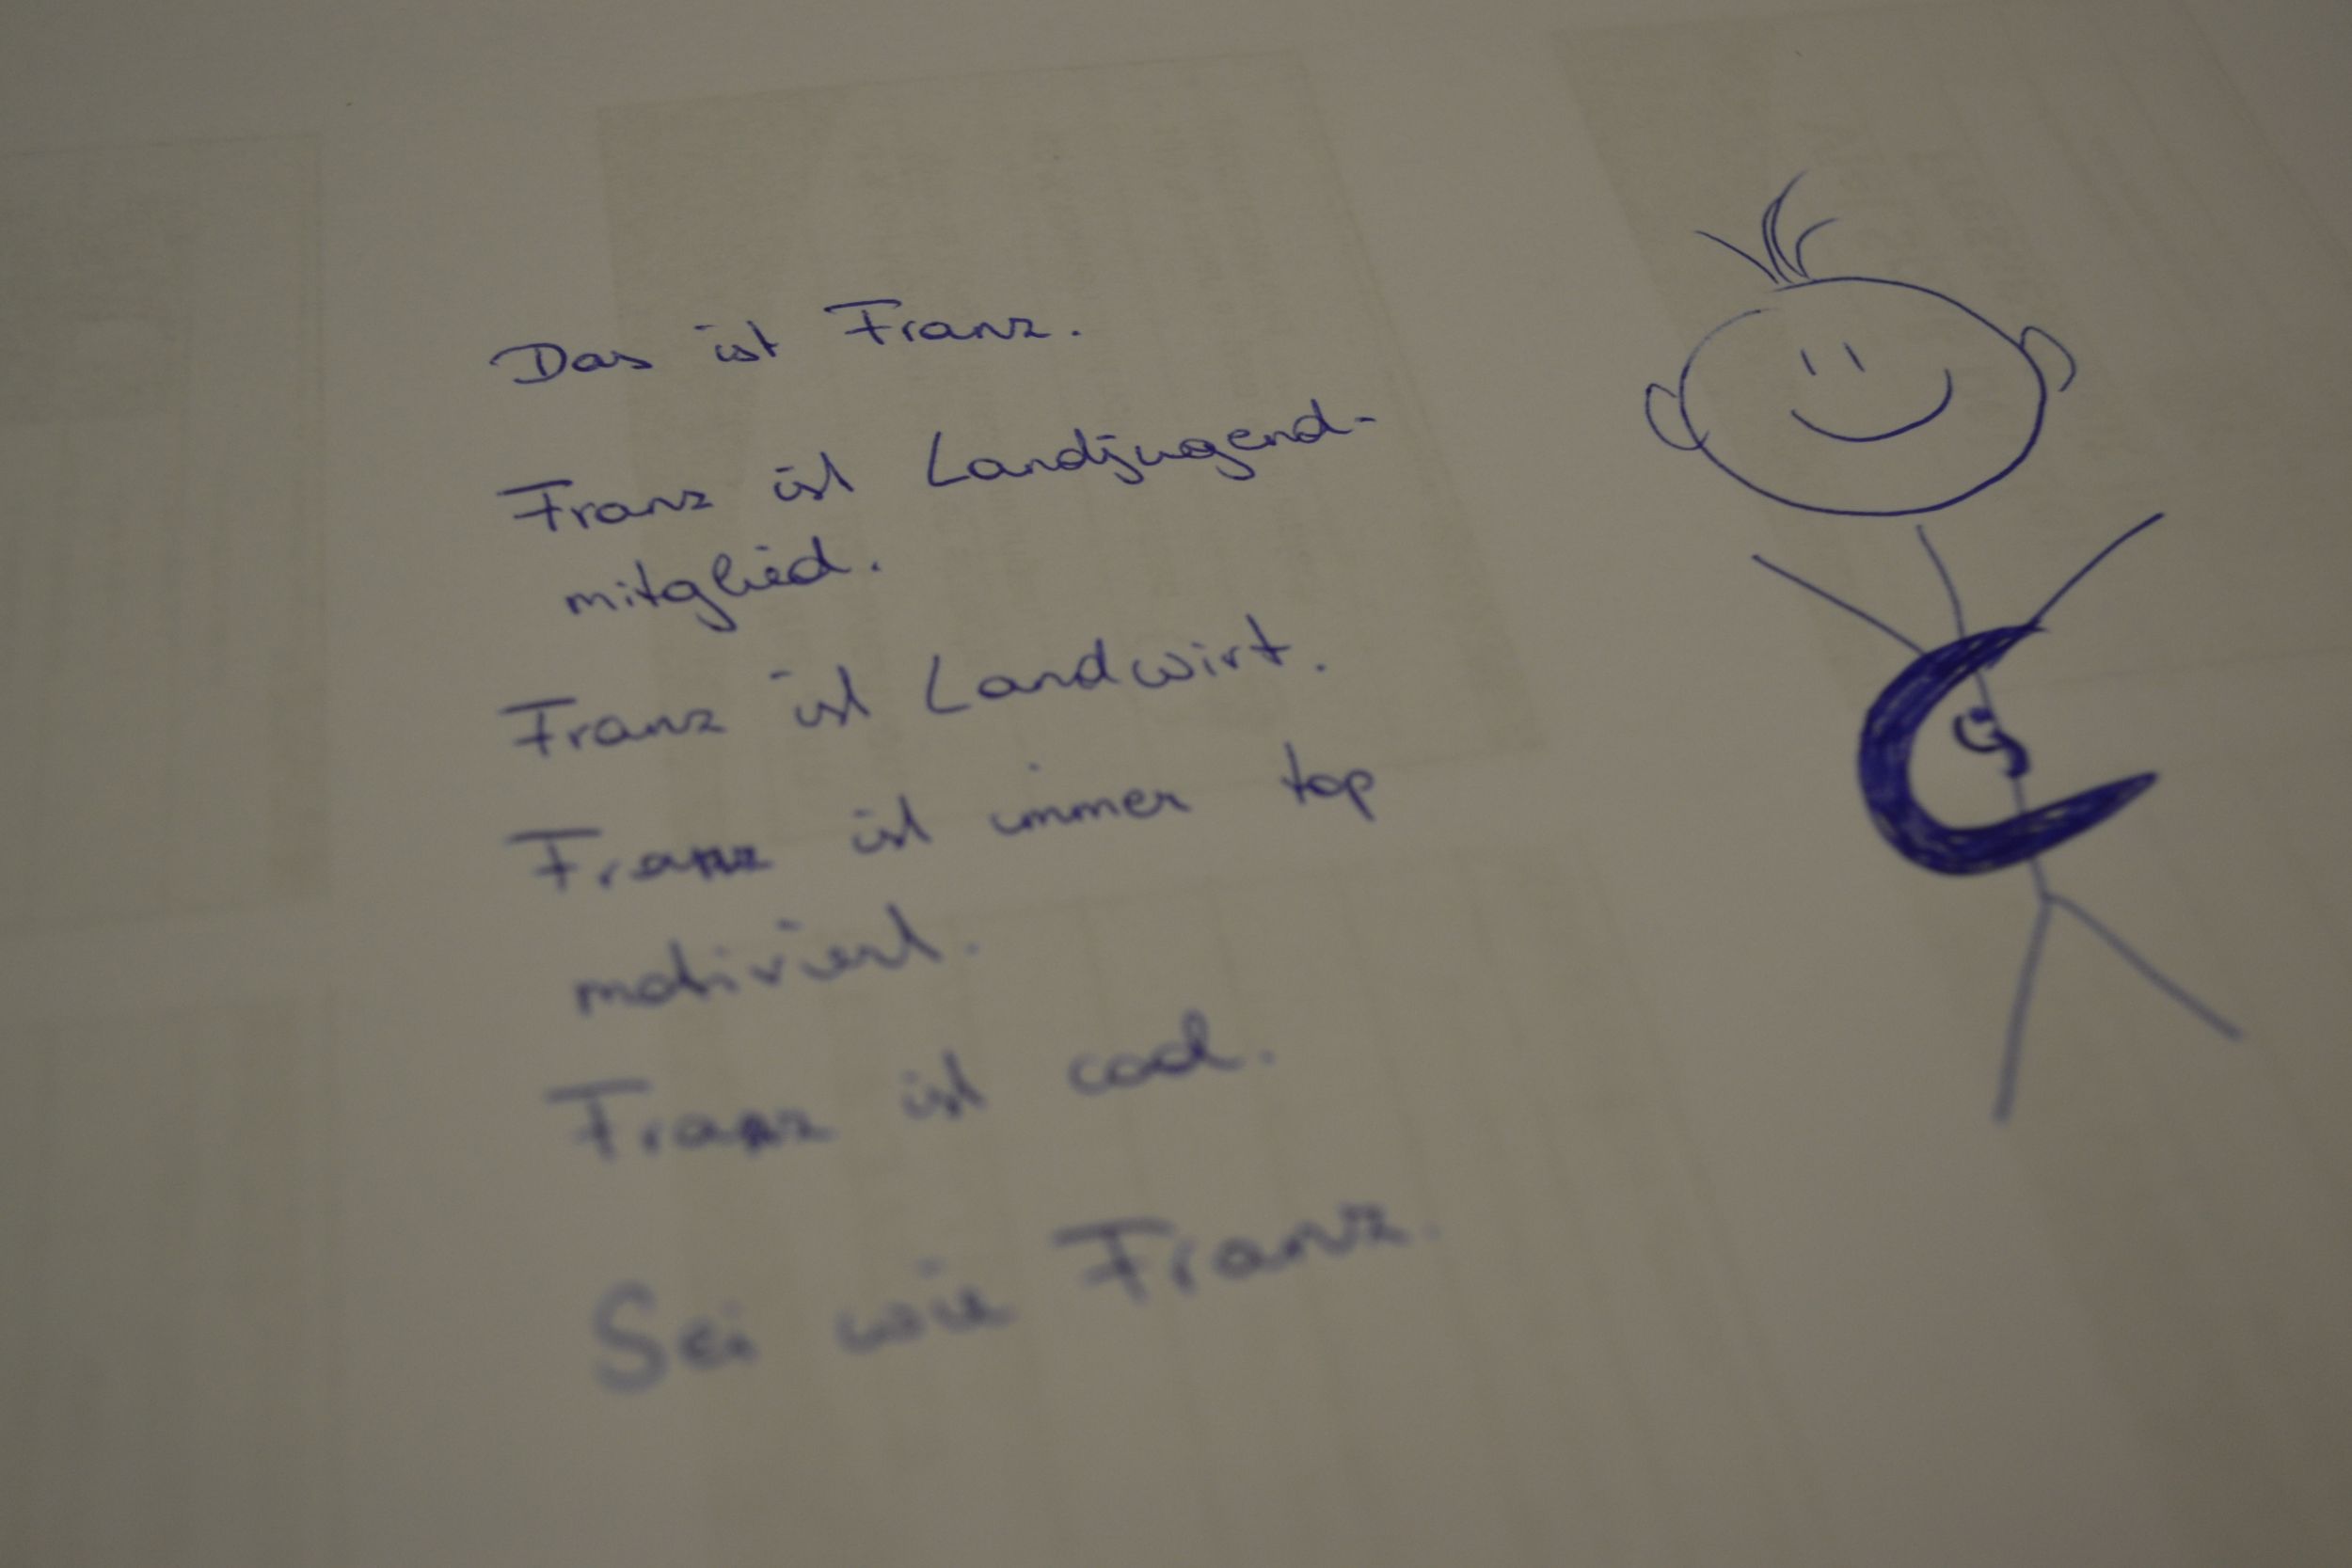 Das ist Franz.
Franz ist Landjugend-
mitglied.
Franz ist Landwirt.
Franz ist immer top
motiviert.
Franz ist cool.
Sei wie Franz.